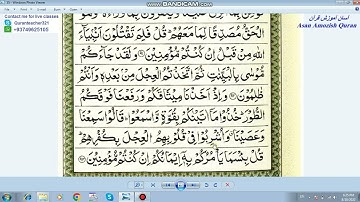 www.BANDICAM.com
Contact me for live classes
Quranteacher321
+93749625105
آسان آموزش قرآن
Asan Amozish Quran
الْحَقُّ مُصَدِّقًا لِّمَا مَعَهُمْ قُلْ فَلِمَ تَقْتُلُونَ اَنْۢبِيَآءَ
اللهِ مِنْ قَبْلُ اِنْ كُنْتُمْ مُّؤْمِنِيْنَ ۝ وَلَقَدْ جَآءَكُمْ
مُّوْسٰى بِالْبَيِّنٰتِ ثُمَّ اتَّخَذْتُمُ الْعِجْلَ مِنْۢ بَعْدِهٖ وَاَنْتُمْ
ظٰلِمُوْنَ ۝ وَاِذْ اَخَذْنَا مِيْثَاقَكُمْ وَرَفَعْنَا فَوْقَكُمُ
الطُّوْرَ خُذُوْا مَآ اٰتَيْنٰكُمْ بِقُوَّةٍ وَّاسْمَعُوْا قَالُوْا سَمِعْنَا
وَعَصَيْنَا وَاُشْرِبُوْا فِيْ قُلُوْبِهِمُ الْعِجْلَ بِكُفْرِهِمْ
قُلْ بِئْسَمَا يَاْمُرُكُمْ بِهٖٓ اِيْمَانُكُمْ اِنْ كُنْتُمْ مُّؤْمِنِيْنَ ۝